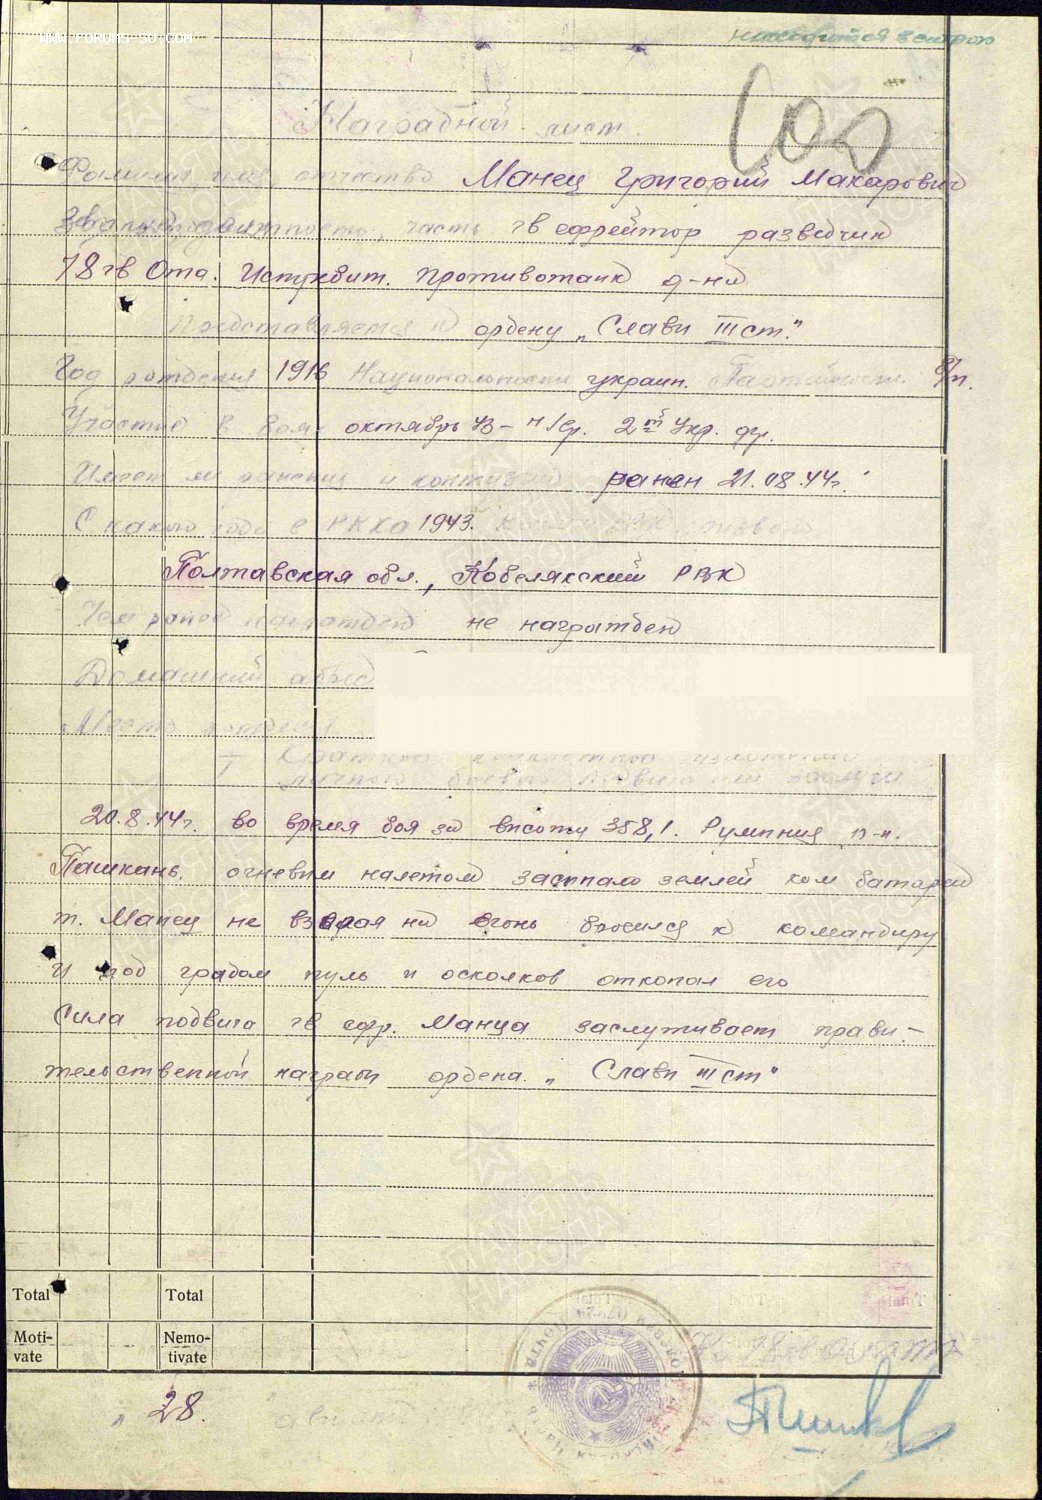 WWW.FORUMS-SU.COM
Наградной лист.
Фамилия, имя, отчество Манец Григорий Макарович
Звание, должность, часть гв ефрейтор разведчик
78 гв Отд. Истребит. Противотанк д-на
Представляется к ордену „Славы III ст."
Год рождения 1916 Национальность украин. Партийность б/п.
Участие в боях октябрь 43 - н/вр. 2й Укр. фр.
Имеет ли ранения и контузии ранен 21.08.44г.
С какого года в РККА 1943. Каким РВК призван
Полтавская обл., Кобелякский РВК
Чем ранее награжден не награжден
Домашний адрес
Место рождения
I Краткое конкретное изложение
личного боевого подвига или заслуг
20.8.44г. во время боя за висоту 358,1. Румыния р-н.
Пашкань. огневым налетом засыпало землей ком батареи
т. Манец не взирая на огонь бросился к командиру
и под градом пуль и осколков откопал его
Сила подвига гв ефр. Манца заслуживает прави-
тельственной награды ордена „Славы III ст"
Total Total
Moti- Nemo-
vate tivate
28. августа